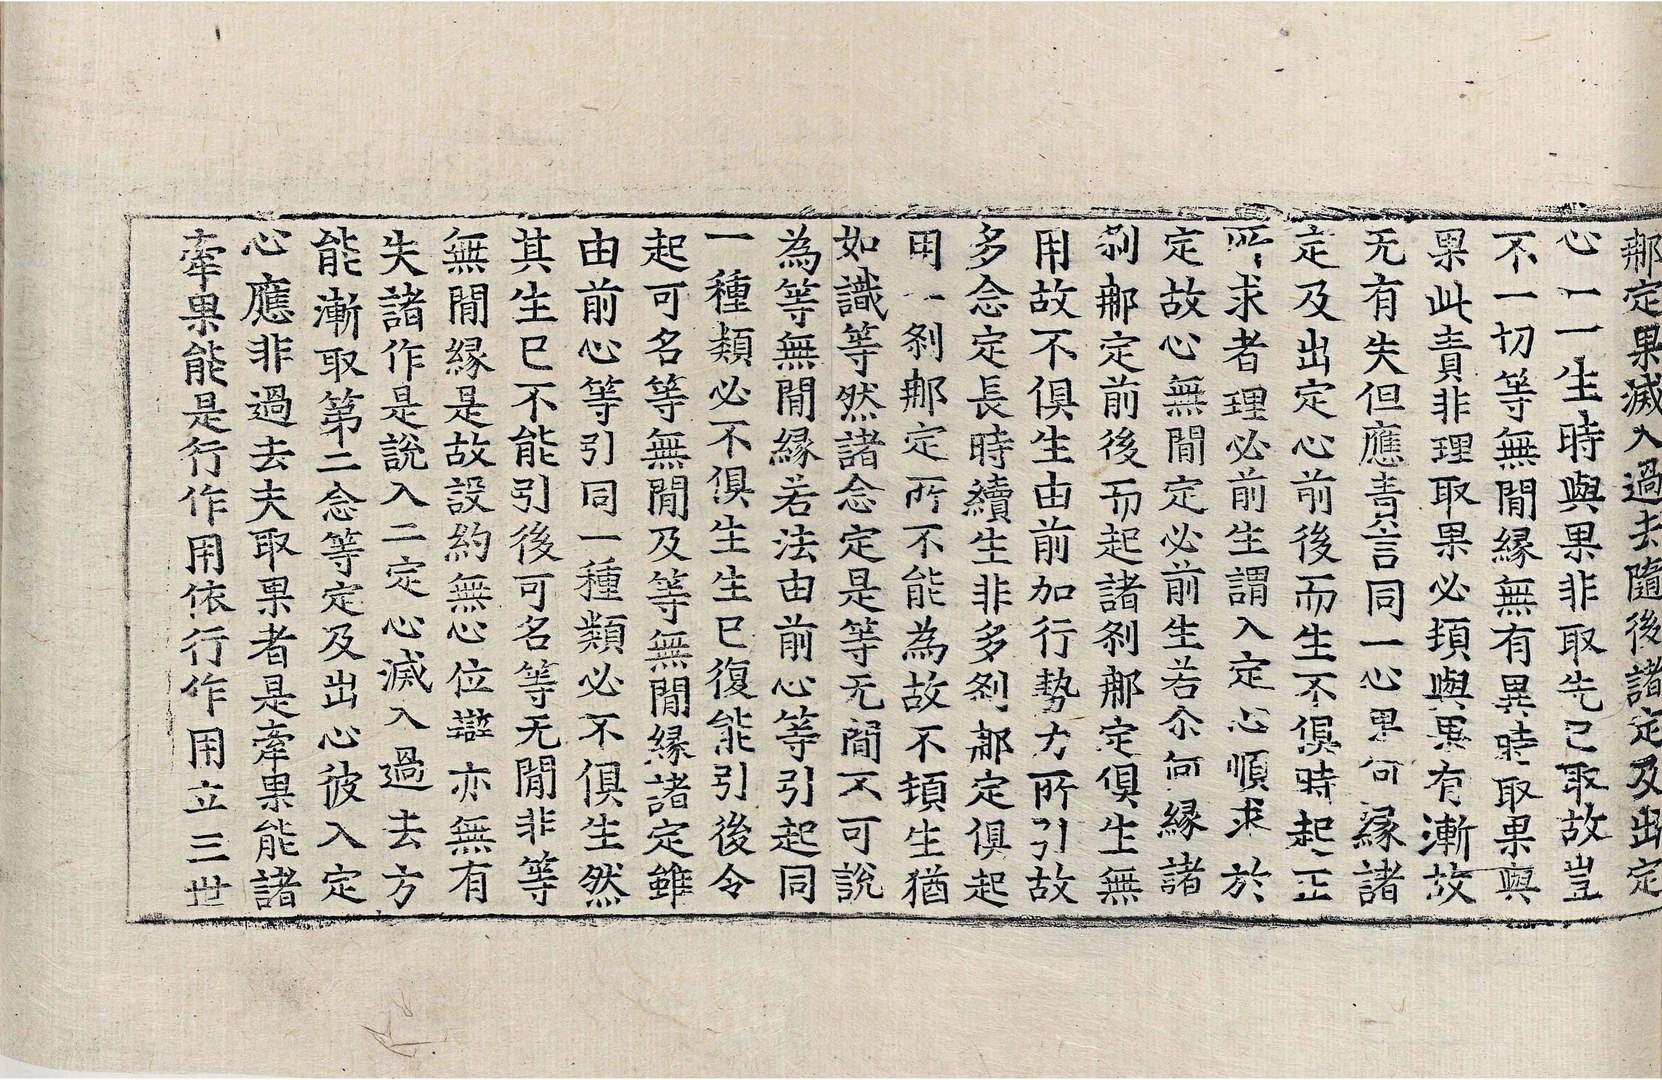 那定果滅入過去隨後諸定及出定
心一一生時與果非取先已取故豈
不一切等無閒緣無有異時取果與
果此責非理取果必頓與果有漸故
无有失但應責言同一心果何緣諸
定及出定心前後而生不俱時起正
所求者理必前生謂入定心順求於
定故心無閒定必前生若尒何緣諸
剎那定前後而起諸剎那定俱生無
用故不俱生由前加行勢力所引故
多念定長時續生非多剎那定俱起
用一剎那定所不能為故不頓生猶
如識等然諸念定是等无閒不可說
為等無閒緣若法由前心等引起同
一種類必不俱生生已復能引後令
起可名等無閒及等無閒緣諸定雖
由前心等引同一種類必不俱生然
其生已不能引後可名等无閒非等
無閒緣是故設約無心位辯亦無有
失諸作是說入二定心滅入過去方
能漸取第二念等定及出心彼入定
心應非過去夫取果者是牽果能諸
牽果能是行作用依行作用立三世